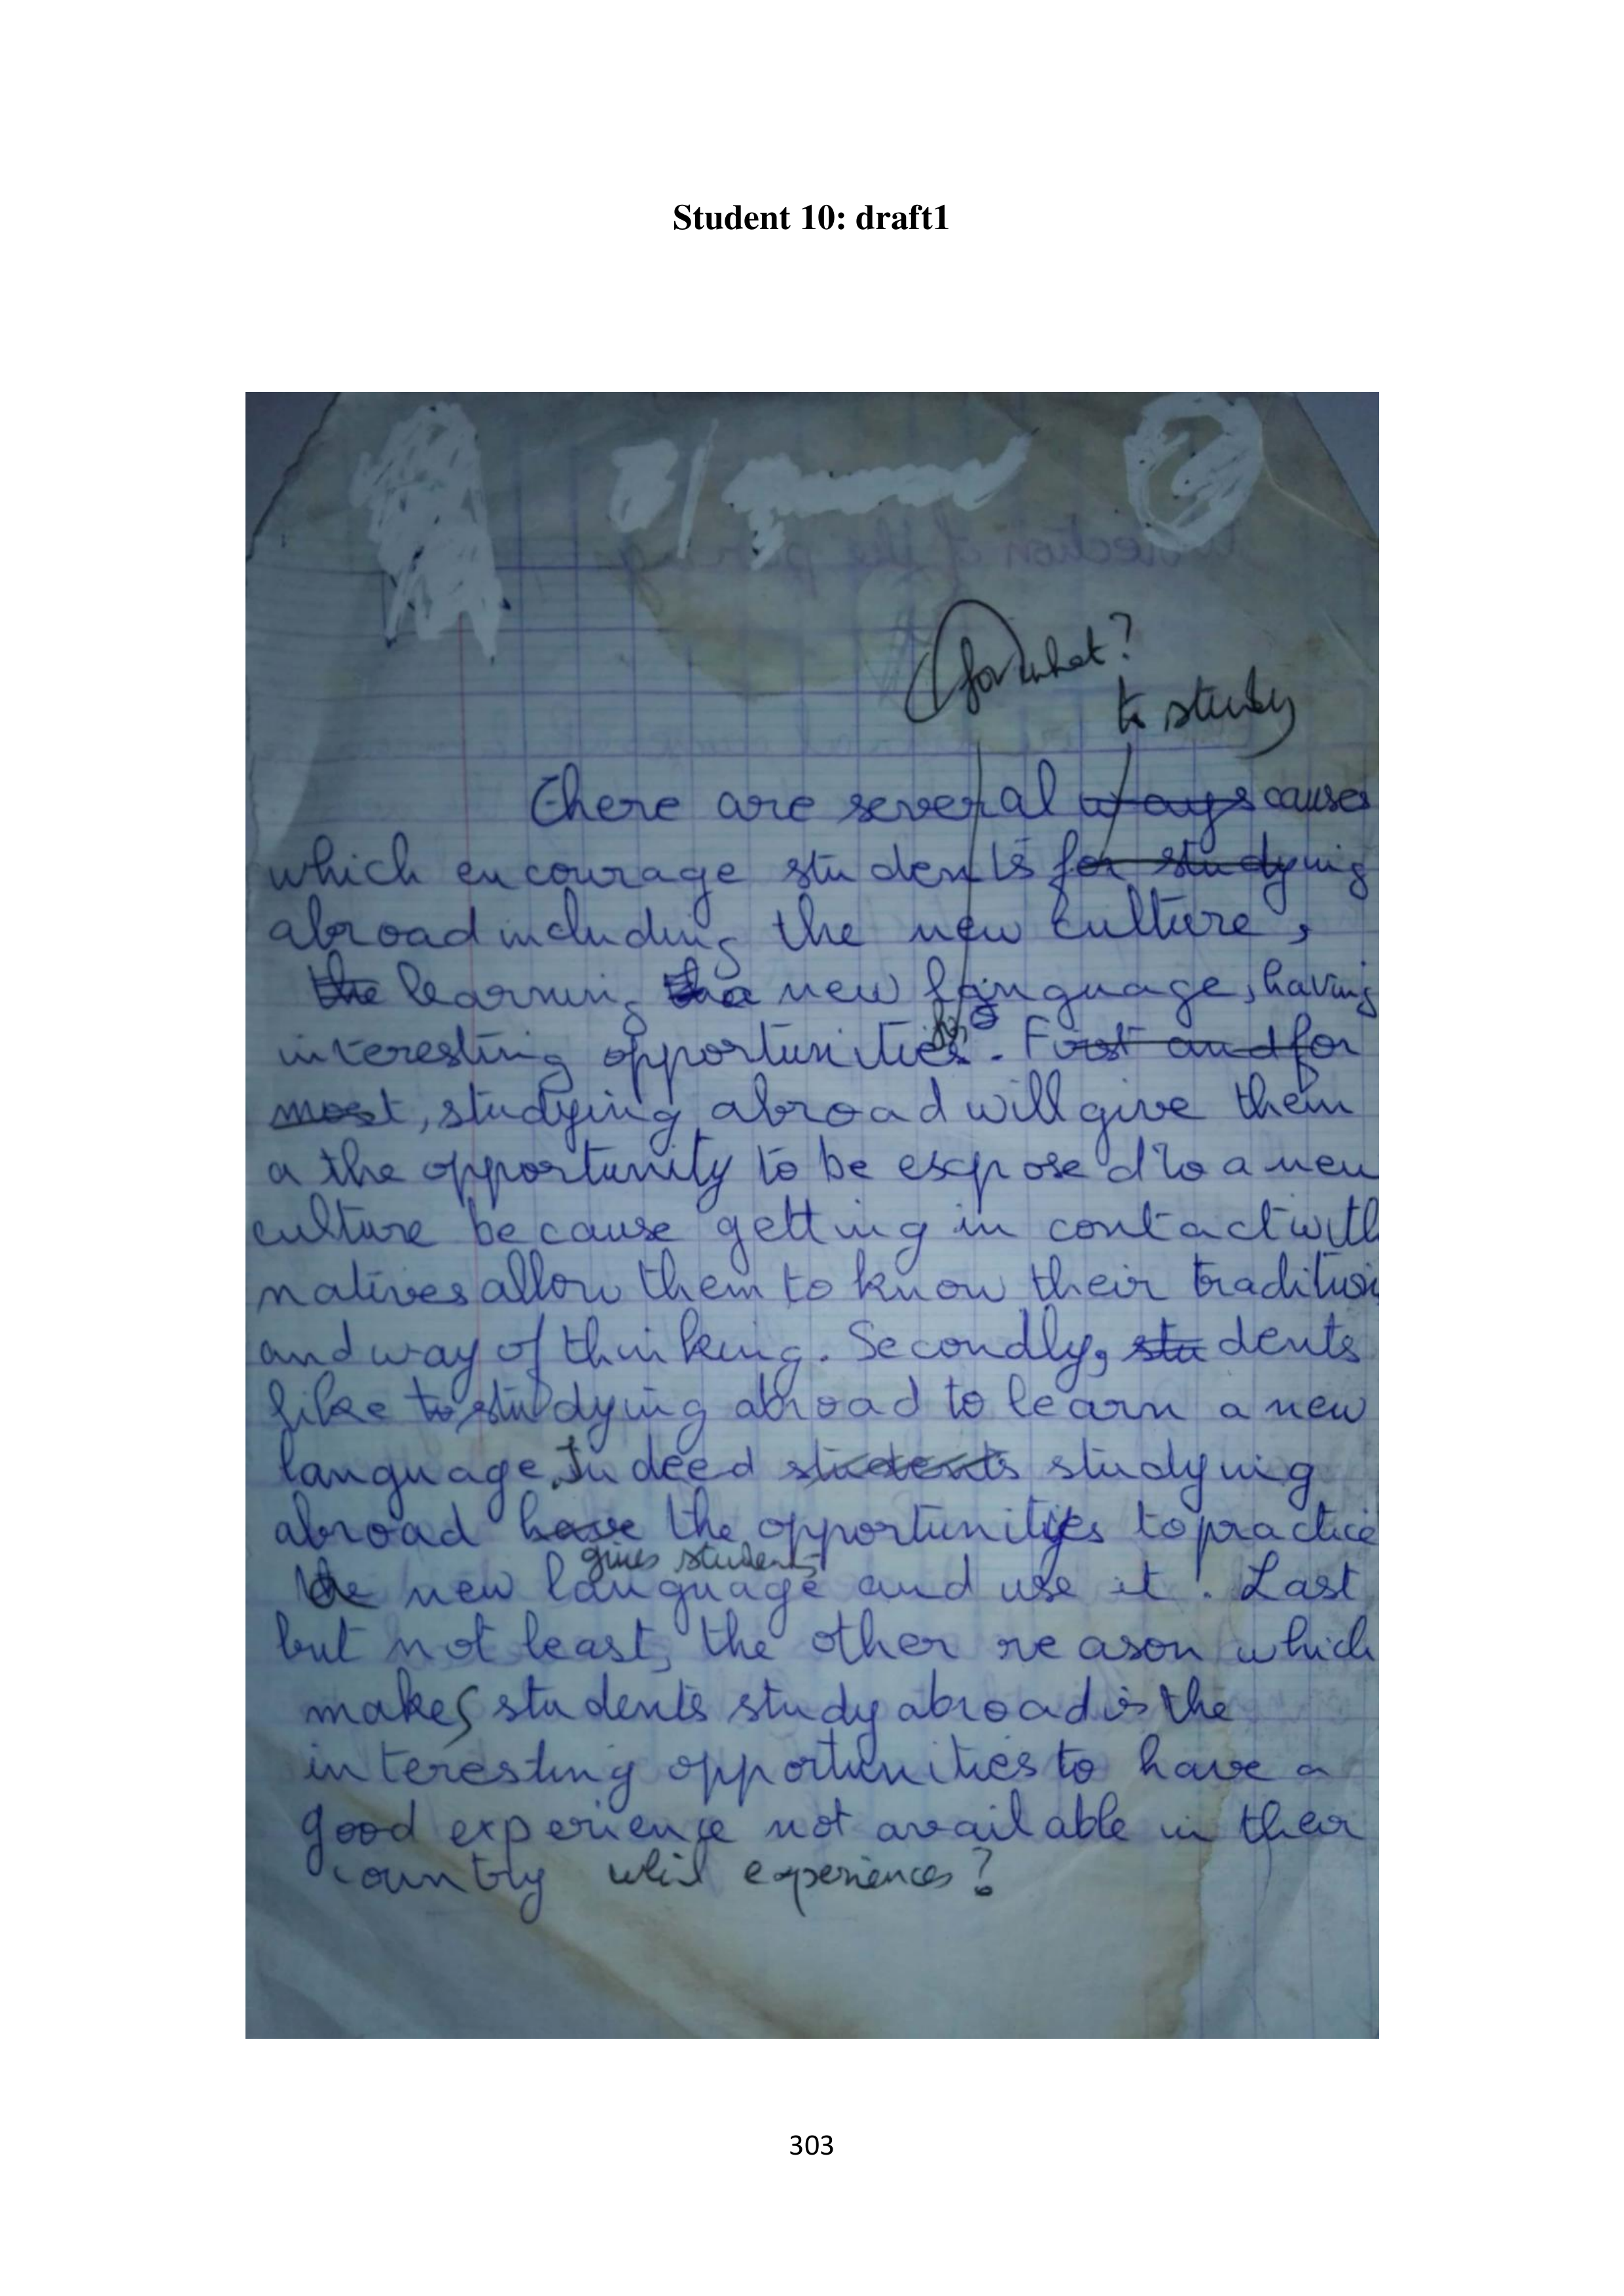 Student 10: draft1
for what?
to study
There are several ways causes
which encourage students for studying
abroad including the new culture,
the learning the new language, having
interesting opportunities. First and for
most, studying abroad will give them
a the opportunity to be exposed to a new
culture because getting in contact with
natives allow them to know their tradition
and way of thinking. Secondly, students
like to studying abroad to learn a new
language. Indeed students studying
abroad have the opportunities to practice
gives students
the new language and use it. Last
but not least, the other reason which
makes students study abroad is the
interesting opportunities to have a
good experience not available in their
country experiences?
303